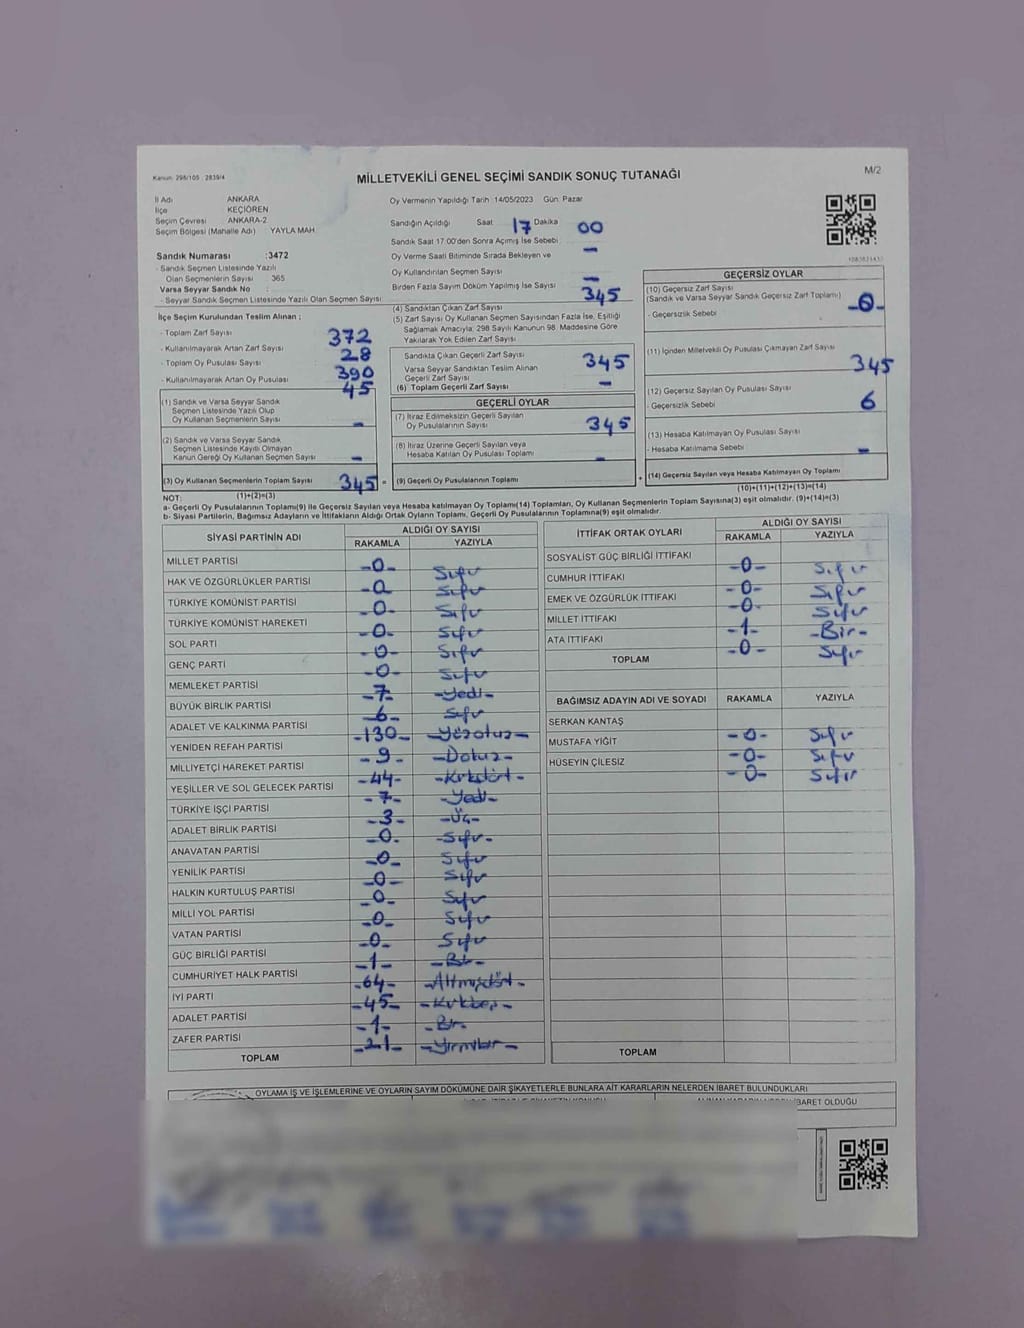 Kanun: 298/105 , 2839/4
MİLLETVEKİLİ GENEL SEÇİMİ SANDIK SONUÇ TUTANAĞI
M/2
İl Adı ANKARA
İlçe KEÇİÖREN
Seçim Çevresi ANKARA-2
Seçim Bölgesi (Mahalle Adı) YAYLA MAH.
Oy Vermenin Yapıldığı Tarih :14/05/2023 Gün: Pazar
Sandığın Açıldığı Saat 17 Dakika 00
Sandık Saat 17:00'den Sonra Açımış İse Sebebi: -
Oy Verme Saati Bitiminde Sırada Bekleyen ve
Oy Kullandırılan Seçmen Sayısı -
Birden Fazla Sayım Döküm Yapılmış İse Sayısı 345
Sandık Numarası :3472
- Sandık Seçmen Listesinde Yazılı
Olan Seçmenlerin Sayısı 365
Varsa Seyyar Sandık No :
- Seyyar Sandık Seçmen Listesinde Yazılı Olan Seçmen Sayısı:
İlçe Seçim Kurulundan Teslim Alınan ;
- Toplam Zarf Sayısı 372
- Kullanılmayarak Artan Zarf Sayısı 28
- Toplam Oy Pusulası Sayısı 390
- Kullanılmayarak Artan Oy Pusulası 45
(1) Sandık ve Varsa Seyyar Sandık
Seçmen Listesinde Yazılı Olup
Oy Kullanan Seçmenlerin Sayısı -
(2) Sandık ve Varsa Seyyar Sandık
Seçmen Listesinde Kayıtlı Olmayan
Kanun Gereği Oy Kullanan Seçmen Sayısı -
(3) Oy Kullanan Seçmenlerin Toplam Sayısı 345 =
(1)+(2)=(3)
(4) Sandıktan Çıkan Zarf Sayısı
(5) Zarf Sayısı Oy Kullanan Seçmen Sayısından Fazla İse, Eşitliği
Sağlamak Amacıyla, 298 Sayılı Kanunun 98. Maddesine Göre
Yakılarak Yok Edilen Zarf Sayısı
Sandıkta Çıkan Geçerli Zarf Sayısı 345
Varsa Seyyar Sandıktan Teslim Alınan
Geçerli Zarf Sayısı -
(6) Toplam Geçerli Zarf Sayısı
GEÇERLİ OYLAR
(7) İtiraz Edilmeksizin Geçerli Sayılan
Oy Pusulalarının Sayısı 345
(8) İtiraz Üzerine Geçerli Sayılan veya
Hesaba Katılan Oy Pusulası Toplamı -
(9) Geçerli Oy Pusulalarının Toplamı +
GEÇERSİZ OYLAR
(10) Geçersiz Zarf Sayısı
(Sandık ve Varsa Seyyar Sandık Geçersiz Zarf Toplamı) -0-
- Geçersizlik Sebebi :
(11) İçinden Milletvekili Oy Pusulası Çıkmayan Zarf Sayısı 345
(12) Geçersiz Sayılan Oy Pusulası Sayısı
- Geçersizlik Sebebi : 6
(13) Hesaba Katılmayan Oy Pusulası Sayısı
- Hesaba Katılmama Sebebi : -
(14) Geçersiz Sayılan veya Hesaba Katılmayan Oy Toplamı
(10)+(11)+(12)+(13)=(14)
NOT:
a- Geçerli Oy Pusulalarının Toplamı(9) ile Geçersiz Sayılan veya Hesaba katılmayan Oy Toplamı(14) Toplamları, Oy Kullanan Seçmenlerin Toplam Sayısına(3) eşit olmalıdır. (9)+(14)=(3)
b- Siyasi Partilerin, Bağımsız Adayların ve İttifakların Aldığı Ortak Oyların Toplamı, Geçerli Oy Pusulalarının Toplamına(9) eşit olmalıdır.
SİYASİ PARTİNİN ADI ALDIĞI OY SAYISI
RAKAMLA YAZIYLA
MİLLET PARTİSİ -0- Sıfır
HAK VE ÖZGÜRLÜKLER PARTİSİ -0 Sıfır
TÜRKİYE KOMÜNİST PARTİSİ -0- Sıfır
TÜRKİYE KOMÜNİST HAREKETİ -0- Sıfır
SOL PARTİ -0- Sıfır
GENÇ PARTİ -0- Sıfır
MEMLEKET PARTİSİ -7- -Yedi-
BÜYÜK BİRLİK PARTİSİ -6- Sıfır
ADALET VE KALKINMA PARTİSİ -130- -Yüzotuz-
YENİDEN REFAH PARTİSİ -9- -Dokuz-
MİLLİYETÇİ HAREKET PARTİSİ -44- -Kırkdört-
YEŞİLLER VE SOL GELECEK PARTİSİ -7- -Yedi-
TÜRKİYE İŞÇİ PARTİSİ -3- -Üç-
ADALET BİRLİK PARTİSİ -0- -Sıfır-
ANAVATAN PARTİSİ -0- Sıfır
YENİLİK PARTİSİ -0- Sıfır
HALKIN KURTULUŞ PARTİSİ -0- Sıfır
MİLLİ YOL PARTİSİ -0- Sıfır
VATAN PARTİSİ -0- Sıfır
GÜÇ BİRLİĞİ PARTİSİ -1- -Bir-
CUMHURİYET HALK PARTİSİ -64- -Altmışdört-
İYİ PARTİ -45- -Kırkbeş-
ADALET PARTİSİ -1- -Bir-
ZAFER PARTİSİ -21- -Yirmibir-
TOPLAM
İTTİFAK ORTAK OYLARI ALDIĞI OY SAYISI
RAKAMLA YAZIYLA
SOSYALİST GÜÇ BİRLİĞİ İTTİFAKI -0- Sıfır
CUMHUR İTTİFAKI -0- Sıfır
EMEK VE ÖZGÜRLÜK İTTİFAKI -0- Sıfır
MİLLET İTTİFAKI -1- -Bir-
ATA İTTİFAKI -0- Sıfır
TOPLAM
BAĞIMSIZ ADAYIN ADI VE SOYADI RAKAMLA YAZIYLA
SERKAN KANTAŞ -0- Sıfır
MUSTAFA YİĞİT -0- Sıfır
HÜSEYİN ÇİLESİZ -0- Sıfır
TOPLAM
OYLAMA İŞ VE İŞLEMLERİNE VE OYLARIN SAYIM DÖKÜMÜNE DAİR ŞİKAYETLERLE BUNLARA AİT KARARLARIN NELERDEN İBARET BULUNDUKLARI
İBARET OLDUĞU